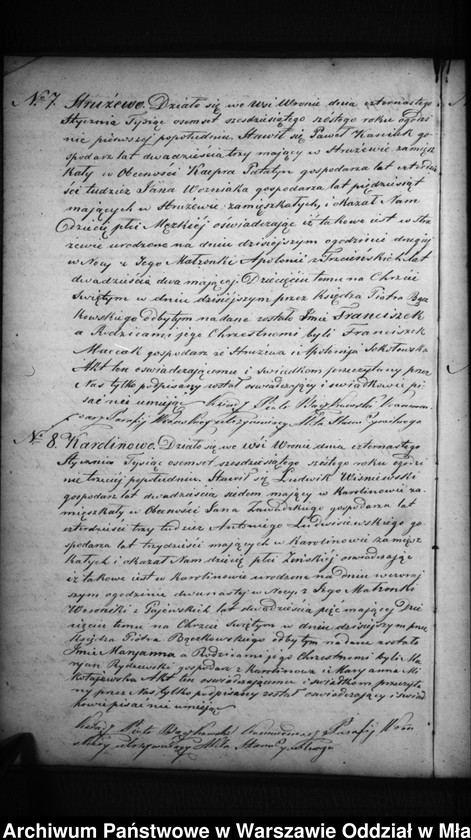 No 7. Strużewo. Działo się we wsi Wronie dnia czternastego
Stycznia Tysiąc osemset szesdziesiątego szóstego roku ogodzi
nie pierwszej popołudniu. Stawił się Paweł Kasiak go
spodarz lat dwadzieścia trzy mający w Strużewie zamiesz
kały w Obecności Kacpra gospodarza lat czterdzie
ści tudzież Jana Wozniaka gospodarza lat pięćdziesiąt
mających w Strużewie zamięszkałych, i okazał Nam
Dziecię płci Męzkiéj oświadczając iż takowe iest w Stru
zewie urodzone na dniu dzisiejszym ogodzinie drugiéj
w Nocy z Iego Małżonki Apolonii z lat
dwadzieścia dwa mającéj. Dziecięciu temu na Chrzcie
Swiętym w dniu dzisiejszym przez Księdza Piotra Bącz
kowskiego odbytym nadane zostało Imie Franciszek
a Rodzicami jégo Chrzestnemi byli Franciszek
gospodarz ze Strużewa i Apolonija Sokołowska
Akt ten oświadczaiącemu i Swiadkom przeczytany przez
Nas tylko podpisany został oswiadczaiący i swiadkowie pi
sać nieumieją. Ksiądz Piotr
Parafij
No 8. Karolinowo. Działo się we wsi Wronie dnia czternastego
Stycznia Tysiąc osemset szesdziesiątego szóstego roku ogodzi
nie trzeciéj popołudniu. Stawił się Ludwik Wisniewski
gospodarz lat dwadzieścia siedem mający w Karolinowie za
mięszkały w Obecności Jana Zawadzkiego gospodarza lat
czterdzieści trzy tudzież Antoniego Ludwisiewskiego go
spodarza lat trzydzieści mających w Karolinowie zamiesz
kałych i okazał Nam dziecię płci Zeńskiéj oswiadczając
iż takowe iest w Karolinowie urodzone na dniu wczoraj
szym ogodzinie dwunastéj w Nocy z Jego Małżonki
Weroniki z lat dwadzieścia pięć mającéj Dzie
cięciu temu na Chrzcie Swiętym w dniu dzisiejszym przez
Księdza Piotra Bączkowskiego odbytym nadane zostało
Imie Maryanna a Rodzicami jego Chrzestnemi byli Ma
ryan Rydzewski gospodarz z Karolinowa i Maryanna
Akt ten oswiadczaiącemu i swiadkom przeczyta
ny przez Nas tylko podpisany został oswiadczaiący i swiad
kowie pisać nieumieją
Ksiądz Piotr Parafij
Archiwum Państwowe w Warszawie Oddział w Mła